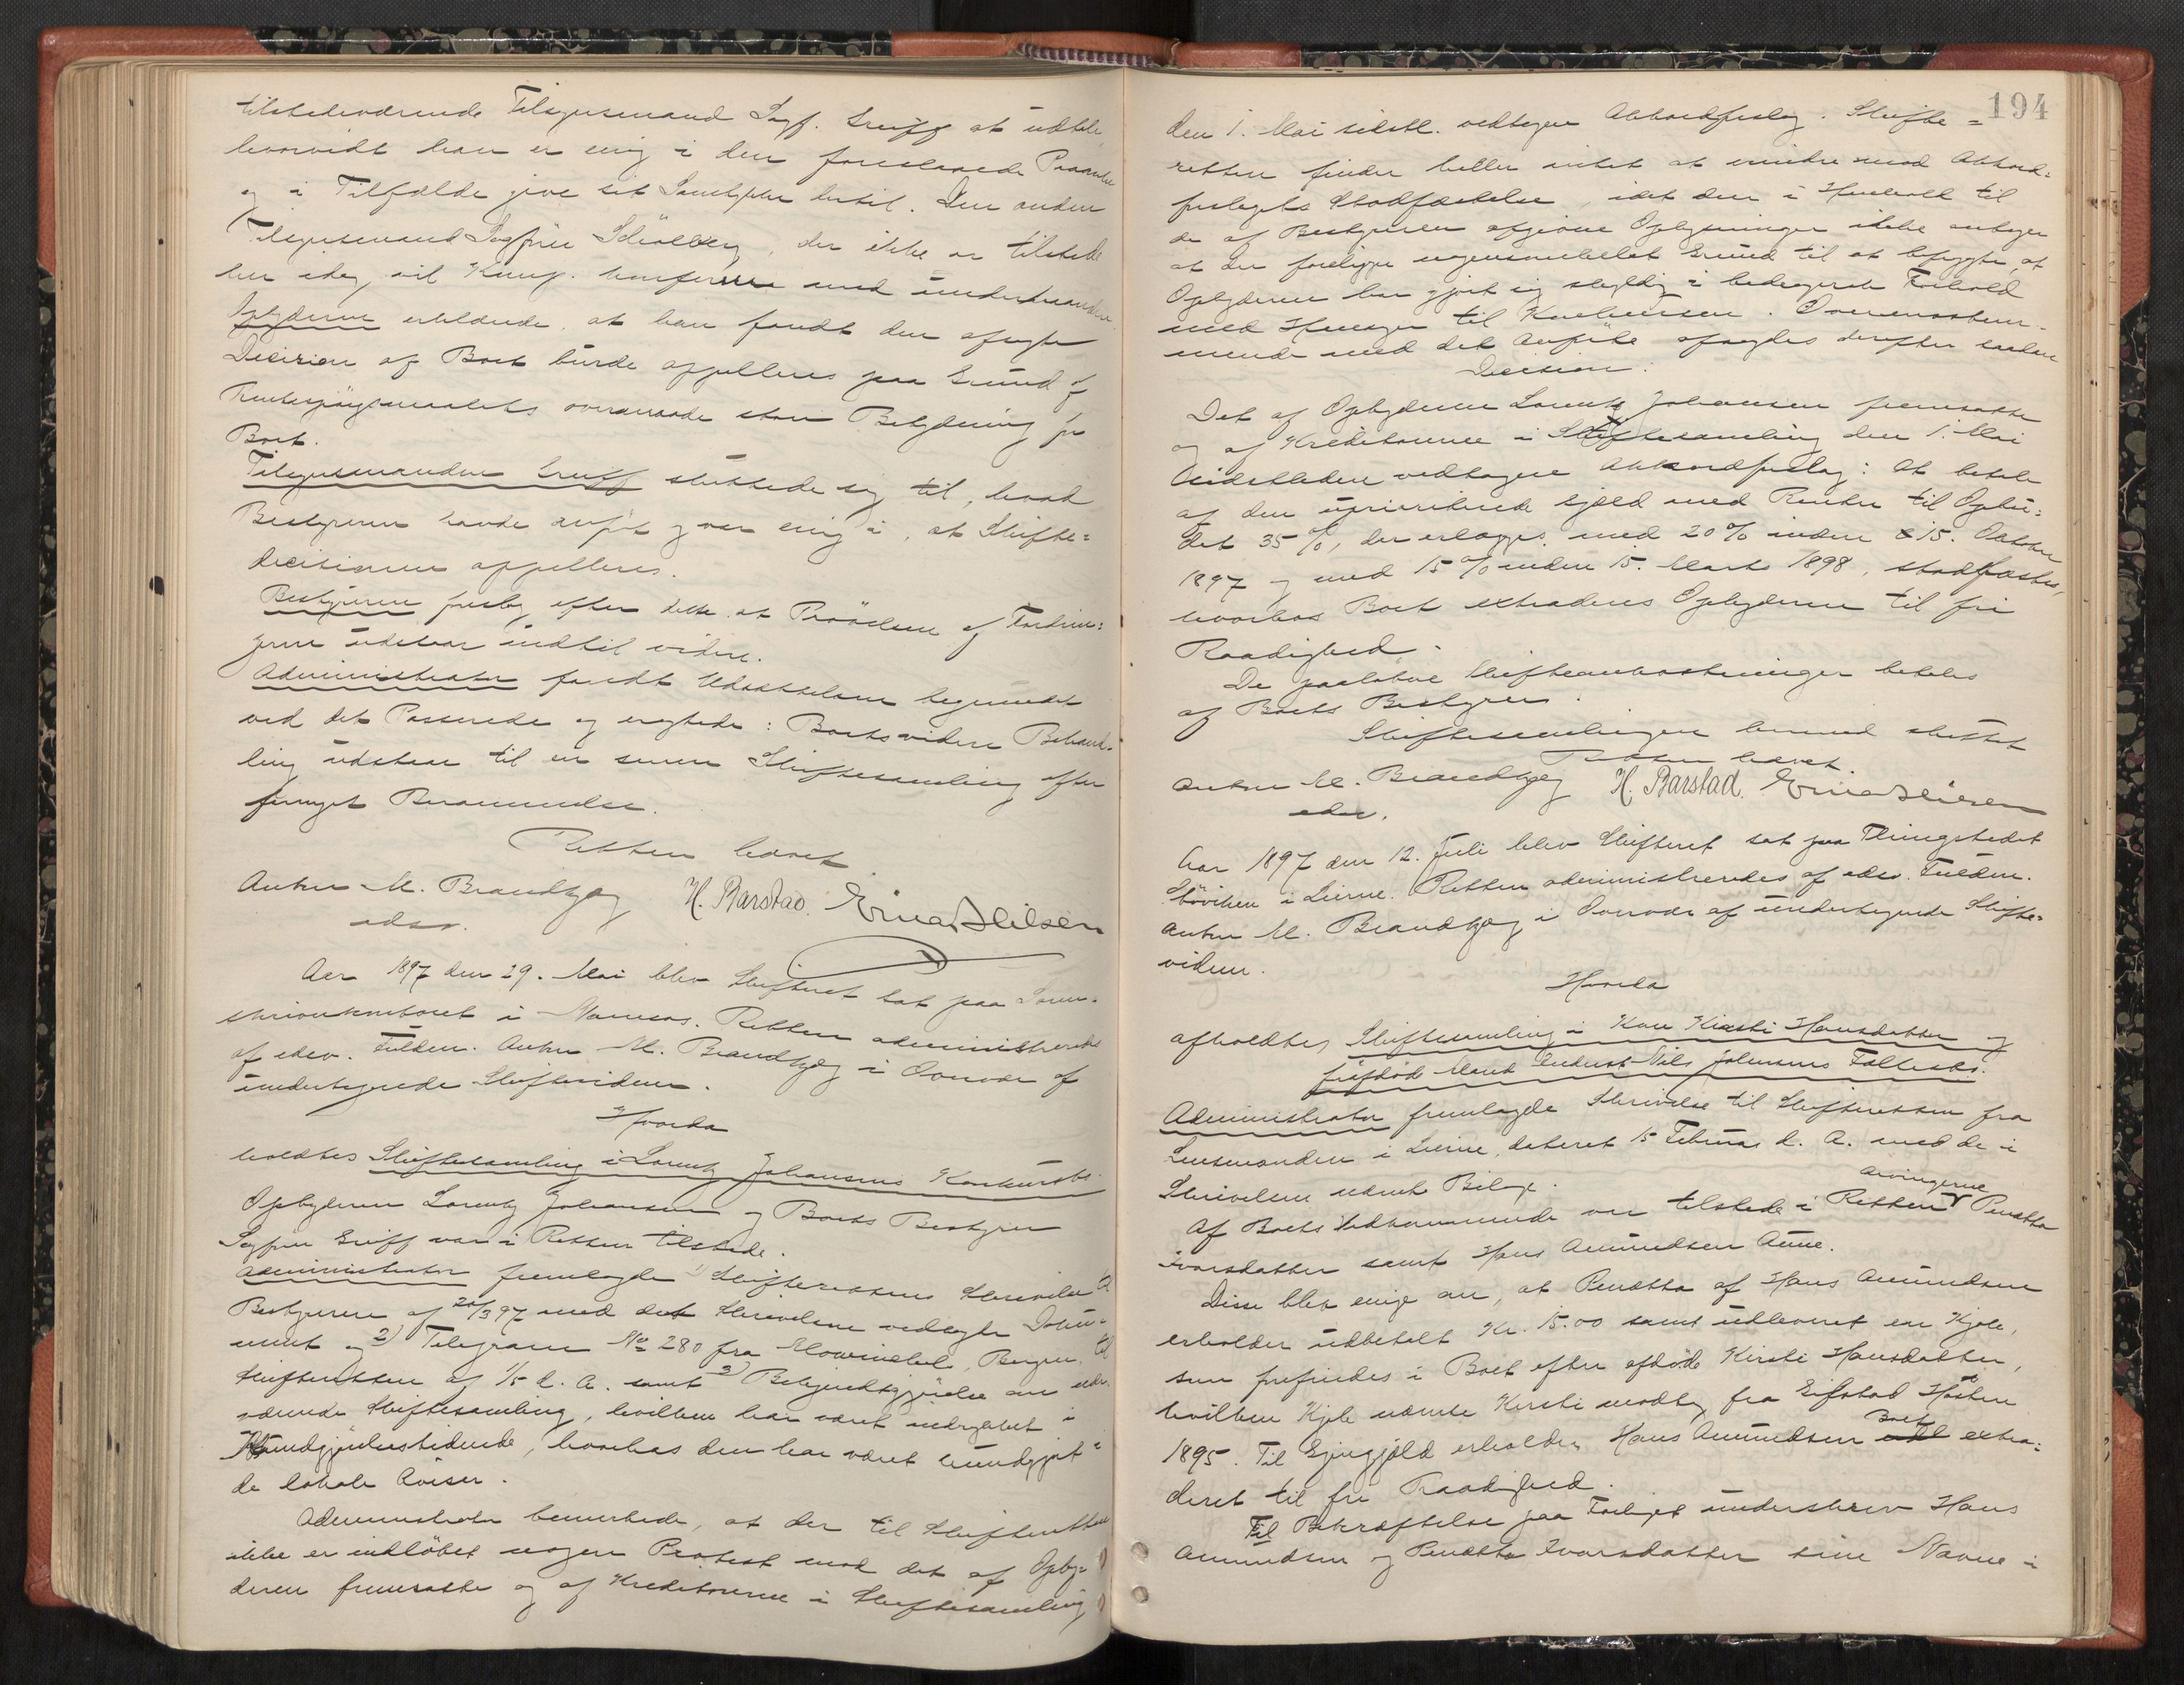 tilstedeværende Tilsynsmand Sagf. Greiff at udtale
hvorvidt han er enig i den foreslaaede Paaanke
og i Tilfælde give sit Samtykke hertil. Den anden
Tilsynsmand Sagfører Schiølberg, der ikke er tilstede
her idag, vil Komp. konferere med underhaanden.
Opbyderne erklærede, at han fandt den afsagte
Decision af Boet burde appelleres paa Grund af
Rentespørgsmaalets overmaade store Betydning for
Boet.
Tilsynsmanden Greiff sluttede sig til, hvad
Bestyreren havde anført og var enig i, at Skifte=
decisionen appelleres.
Bestyreren foreslog efter dette at Prøvelsen af Fordrin=
gerne udstaar indtil videre.
Administrator fandt Udsættelsen begrundet
ved det Passerede og eragtede: Boets videre Behand=
ling udstaar til en senere Skiftesamling efter
fornyet Berammelse.
Retten hævet
Anker M. Brandhøg H. Barstad. Erica Nilsen
edsv.
Aar 1897 den 29. Mai blev Skifteret sat paa Soren=
skriverkontoret i Namsos. Retten administreredes
af edsv. Fuldm. Anker M. Brandhøg i Overvær af
undertegnede Skiftevidner.
Hvorda
holdtes Skiftesamling i Lorentz Johansens Konkursbo.
Opbyderen Lorentz Johansen og Boets Bestyrer
Sagfører Greiff var i Retten tilstede.
Administrator fremlagde 1) Skifterettens Skrivelse til
Bestyreren af 20/3 97 med det Skrivelsen vedlagte Doku=
ment og 2) Telegram No 280 fra Mowinckel, Bergen, til
Skifteretten af 1/5 d. A. samt 3) Bekjendtgjørelse om nær=
værende Skiftesamling, hvilken har været indrykket i
Kundgjørelsestidende, hvorhos den har været kundgjort i
de lokale Aviser.
Administrator bemærkede, at der til Skifteretten
ikke er indløbet nogen Protest mod det af Opby=
deren fremsatte og af Kreditorerne i Skiftesamling
194
den 1. Mai sidstl. vedtagne Akkordforslag. Skifte=
retten finder heller intet at erindre mod Akkord=
forslagets Stadfæstelse, idet den i Henhold til
de af Bestyreren afgivne Oplysninger ikke antager
at der foreligger nogensomhelst Grund til at befrygte, at
Opbyderen har gjort sig skyldig i bedragersk Forhold
med Hensyn til Konkursen. Overensstem=
mende med det Anførte afsagdes derefter saadan
Decision:
Det af Opbyderen Lorentz Johansen fremsatte
og af Kreditorerne i Skiftesamling den 1. Mai
sidstleden vedtagne Akkordforslag: At betale
af den uprioriterede Gjæld med Renter til Opbu=
det 35 %, der erlægges med 20 % inden 15. Oktober
1897 og med 15 % inden 15. Marts 1898, stadfæstes,
hvorhos Boet extraderes Opbyderen til fri
Raadighed.
De paaløbne Skifteomkostninger betales
af Boets Bestyrer.
Skiftesamlingen hermed sluttet
Retten hævet.
Anker M. Brandhøg H. Barstad. Erica Nilsen
edsv.
Aar 1897 den 12. Juli blev Skifteret sat paa Thingstedet
Støviken i Lierne. Retten administreredes af edsv. Fuldm.
Anker M. Brandhøg i Overvær af undertegnede Skifte=
vidner.
Hvorda
afholdtes Skiftesamling i Kone Kirsti Hansdatter og
førafdød Mand Nils Johnsens Fællesbo.
Administrator fremlagde Skrivelse til Skifteretten fra
Lensmanden i Lierne, dateret 15 Februar d. A. med de i
Skrivelsen nævnte Bilage.
Af Boets Vedkommende var tilstede i Retten Arvingerne Penetta
Ivarsdatter samt Hans Amundsen Aune.
Disse blev enige om, at Penetta af Hans Amundsen
erholder udbetalt Kr. 15.00 samt udleveret en Kjole,
som forefindes i Boet efter afdøde Kirsti Hansdatter,
hvilken Kjole nævnte Kirsti modtog fra Høsten
1895. Til Gjengjæld erholder Hans Amundsen Boet extra=
deret til fri Raadighed.
Til Bekræftelse paa Forliget underskrev Hans
Amundsen og Penetta Ivarsdatter sine Navne i